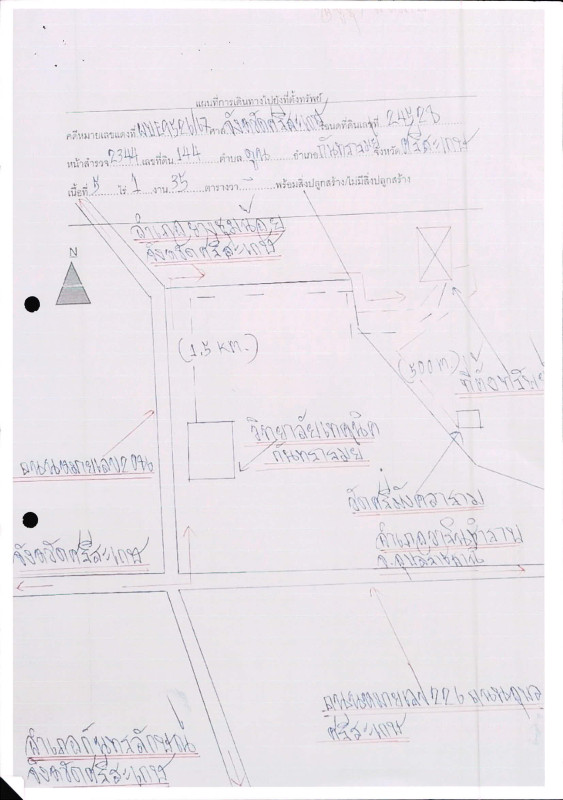 แผนที่การเดินทางไปยังที่ตั้งทรัพย์
คดีหมายเลขแดงที่ ผบE952/17 ศาล จังหวัดศรีสะเกษ โฉนดที่ดินเลขที่ 24528
หน้าสำรวจ 2344 เลขที่ดิน 144 ตำบล ดูน อำเภอ กันทรารมย์ จังหวัด ศรีสะเกษ
เนื้อที่ 5 ไร่ 1 งาน 35 ตารางวา - พร้อมสิ่งปลูกสร้าง/ไม่มีสิ่งปลูกสร้าง
อำเภอยางชุมน้อย
จังหวัดศรีสะเกษ
N
(1.5 km.)
(500 m)
ที่ตั้งทรัพย์
วิทยาลัยเทคนิค
กันทรารมย์
ถนนหมายเลข 2076
วัดศรี
อำเภอวารินชำราบ
จ.อุบลราชธานี
จังหวัดศรีสะเกษ
ถนนหมายเลข 226 ถนนอุบล
ศรีสะเกษ
อำเภอกันทรลักษณ์
จังหวัดศรีสะเกษ